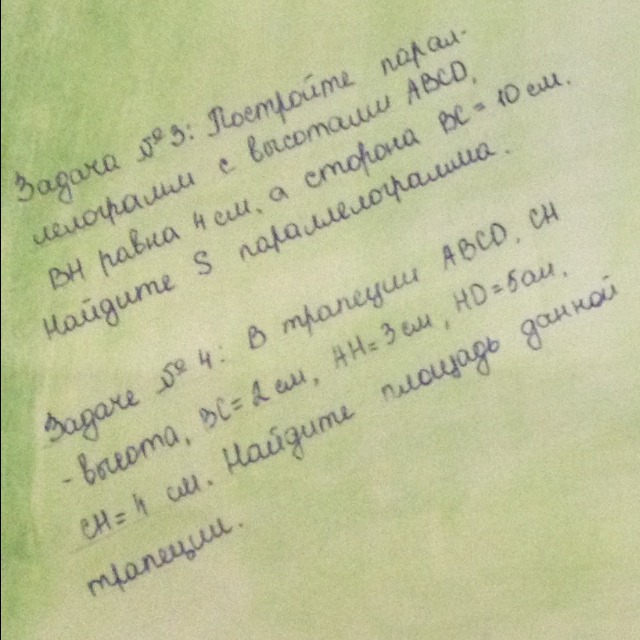 Задача № 3: Постройте парал-
лелограмм с высотами ABCD,
BH равна 4 см, а сторона BC = 10 см.
Найдите S параллелограмма.
Задаче № 4: В трапеции ABCD, CH
- высота, BC = 2 см, AH = 3 см, HD = 5 см,
CH = 4 см. Найдите площадь данной
трапеции.